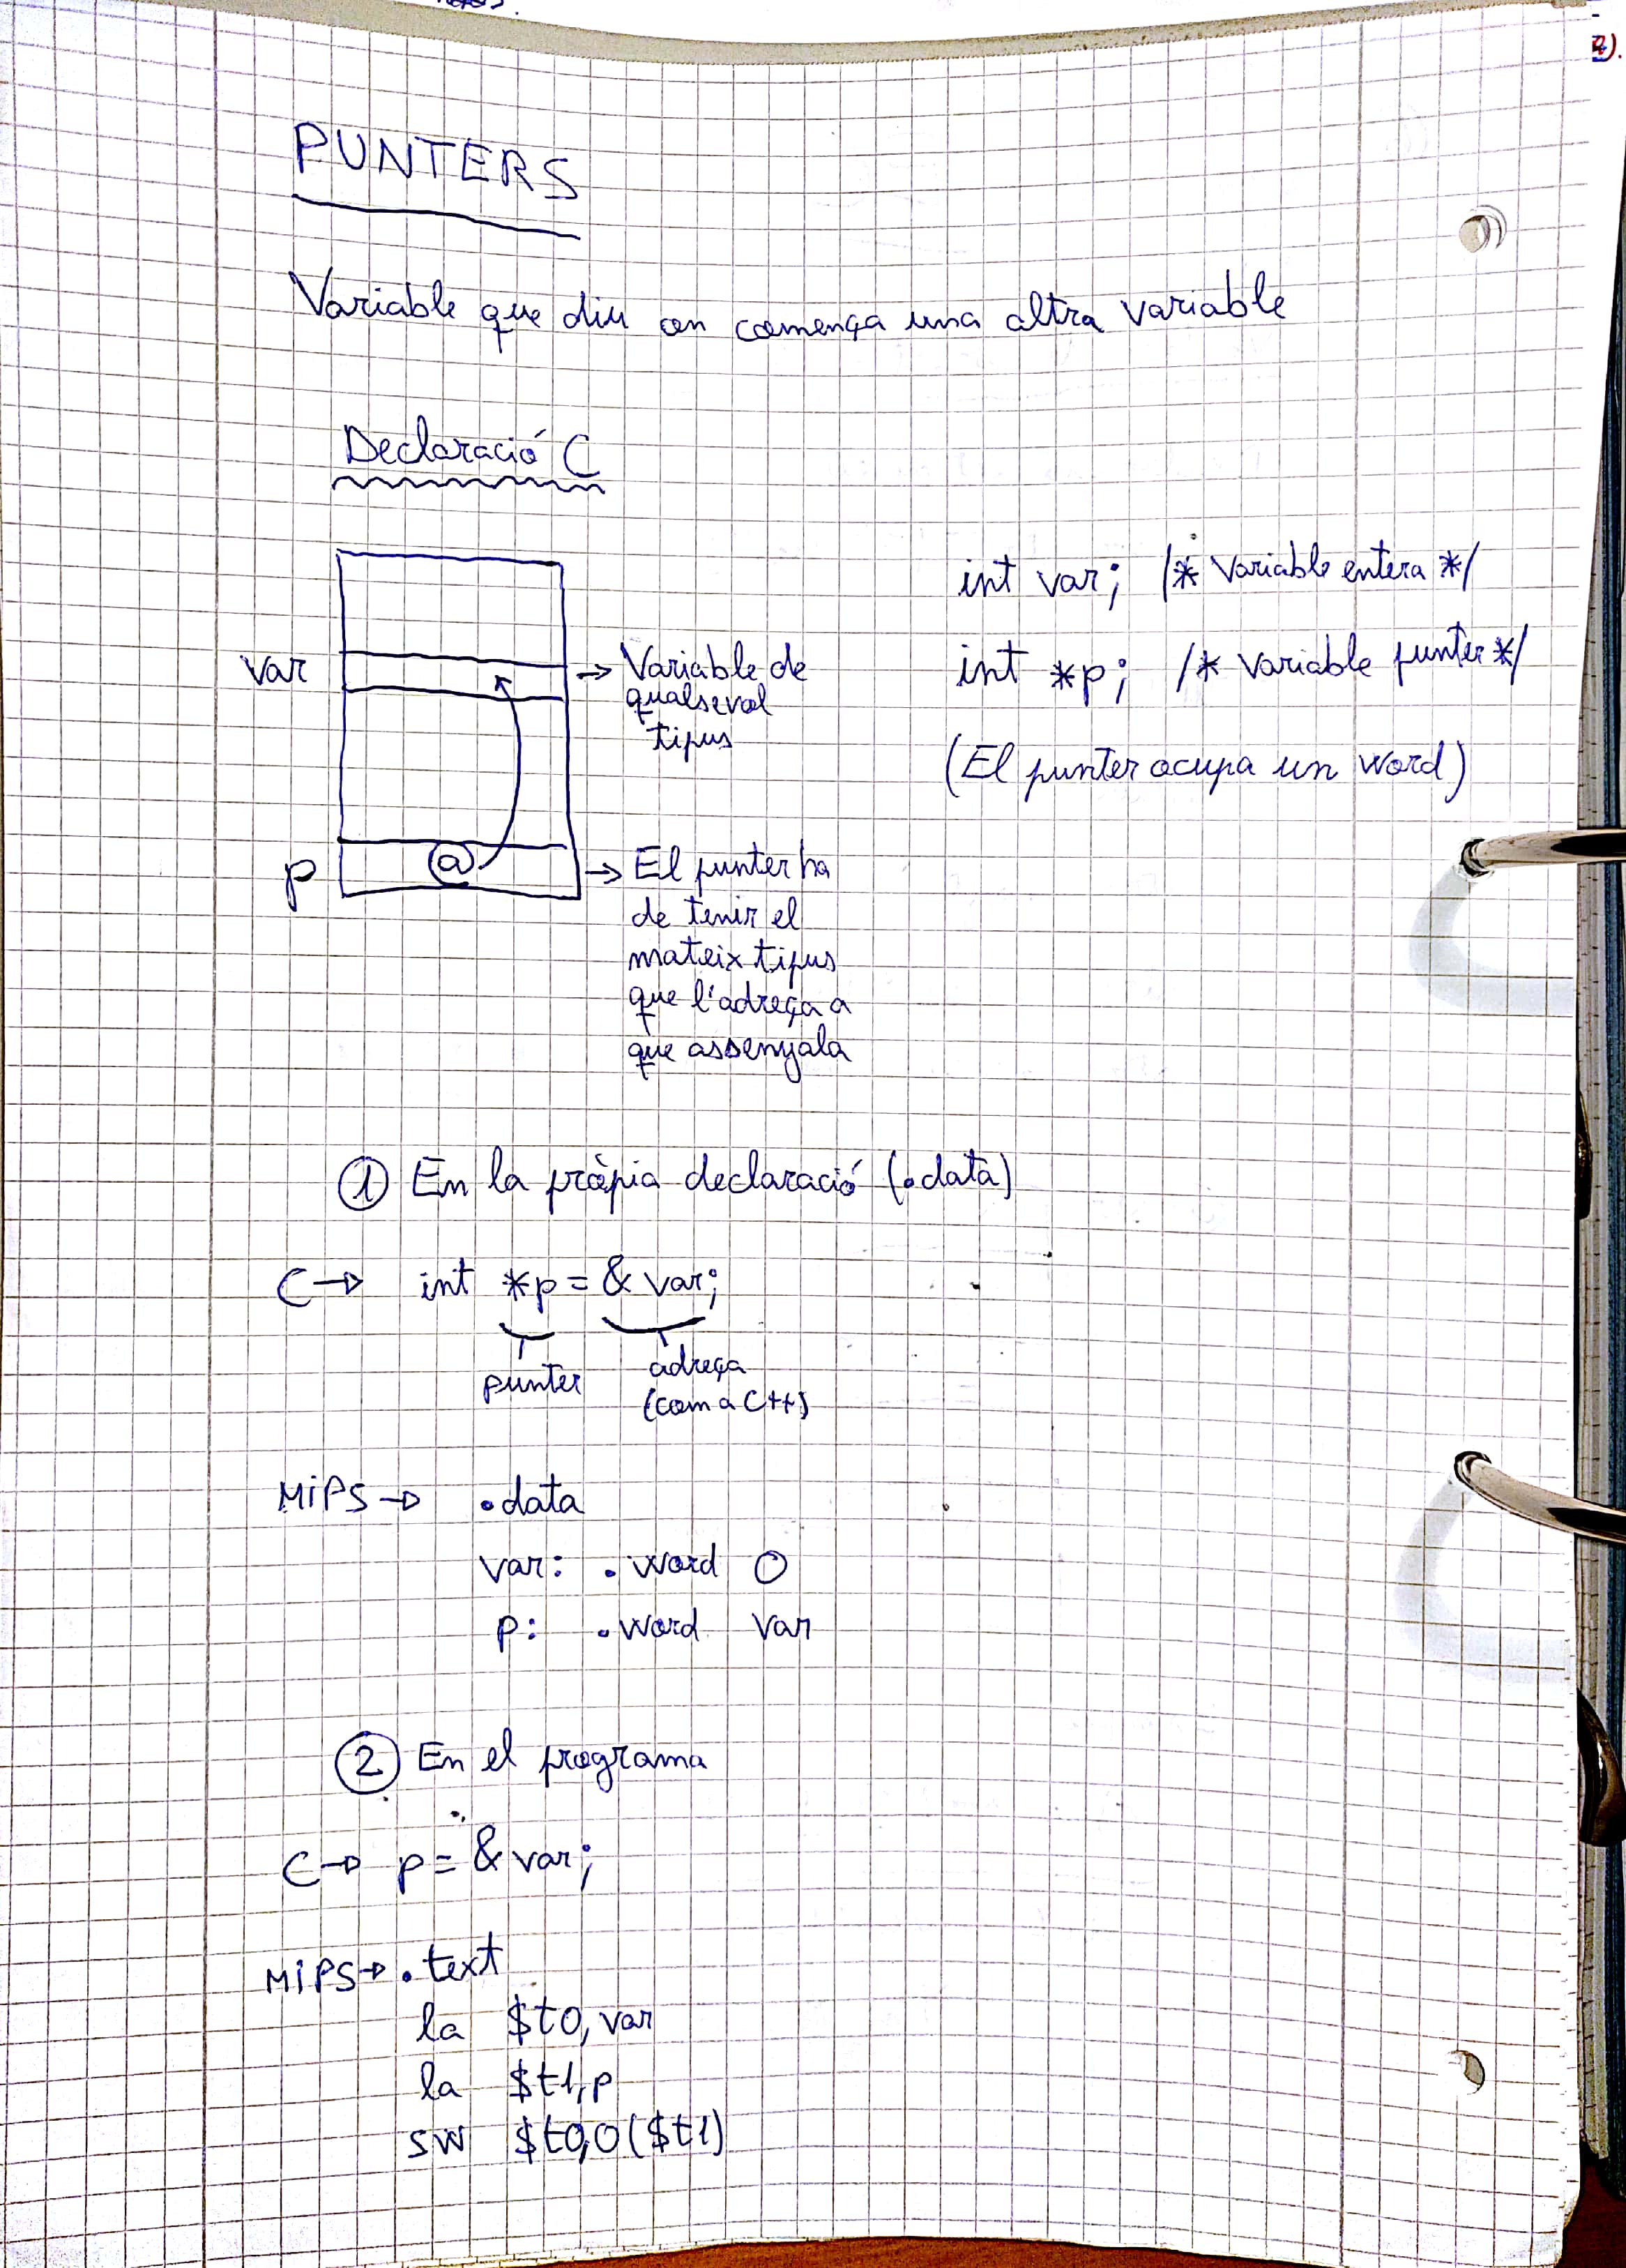 PUNTERS
Variable que diu on comença una altra variable
Declaració C
var
→ Variable de
qualsevol
tipus
p
@
→ El punter ha
de tenir el
mateix tipus
que l'adreça a
que assenyala
int var; /* Variable entera */
int *p; /* Variable punter */
(El punter ocupa un word)
① En la pròpia declaració (.data)
C → int *p = & var;
punter
adreça
(com a C++)
MiPS → .data
var: .word 0
p: .word var
② En el programa
C → p = & var;
MiPS → .text
la $t0, var
la $t1, p
sw $t0,0($t1)